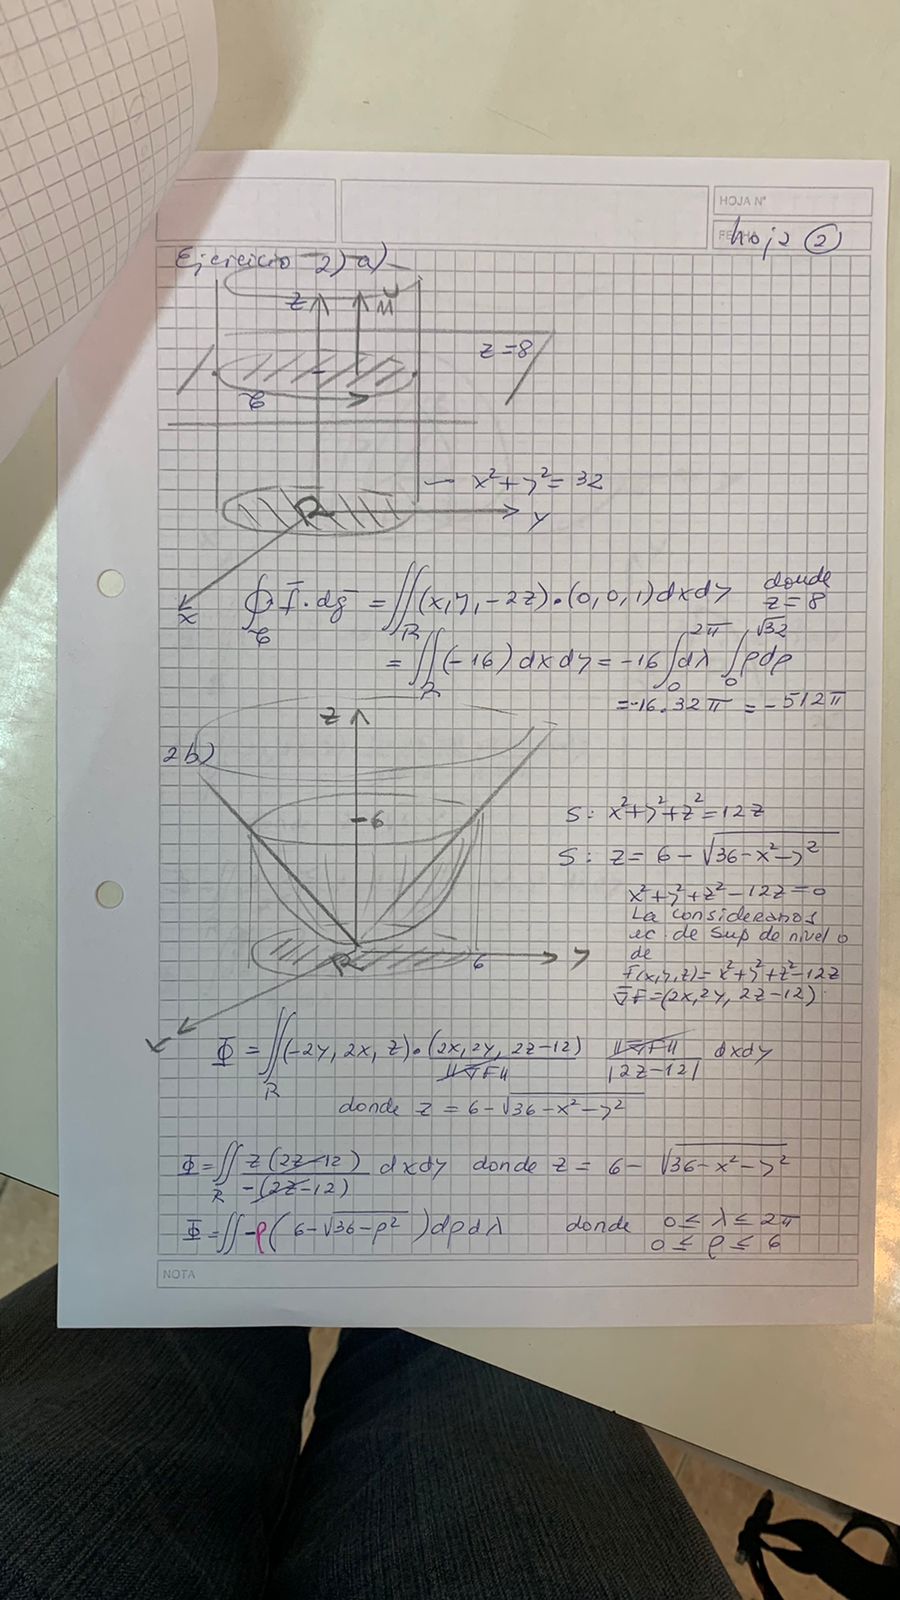 HOJA N°
FECHA
hoja ②
Ejercicio 2) a)
z
z=8
x²+y²=32
R
y
x
∮ f̄·dḡ = ∬ (x, y, -2z)·(0,0,1) dxdy donde z=8
= ∬ (-16) dxdy = -16 ∫₀^2π dλ ∫₀^√32 ρdρ
= -16.32π = -512π
2b)
z
6
S: x²+y²+z²=12z
S: z= 6-√(36-x²-y²)
x²+y²+z²-12z=0
La consideramos
ec. de sup de nivel 0
de
F(x,y,z)= x²+y²+z²-12z
∇̄F=(2x,2y, 2z-12)
R
6
y
x
Φ = ∬ (-2y, 2x, z)·(2x, 2y, 2z-12)/||∇F|| ||∇F||/|2z-12| dxdy
R
donde z = 6-√(36-x²-y²)
Φ = ∬ z(2z-12)/-(2z-12) dxdy donde z = 6-√(36-x²-y²)
R
Φ = ∬ -ρ(6-√(36-ρ²)) dρdλ donde 0≤λ≤2π
0≤ρ≤6
NOTA